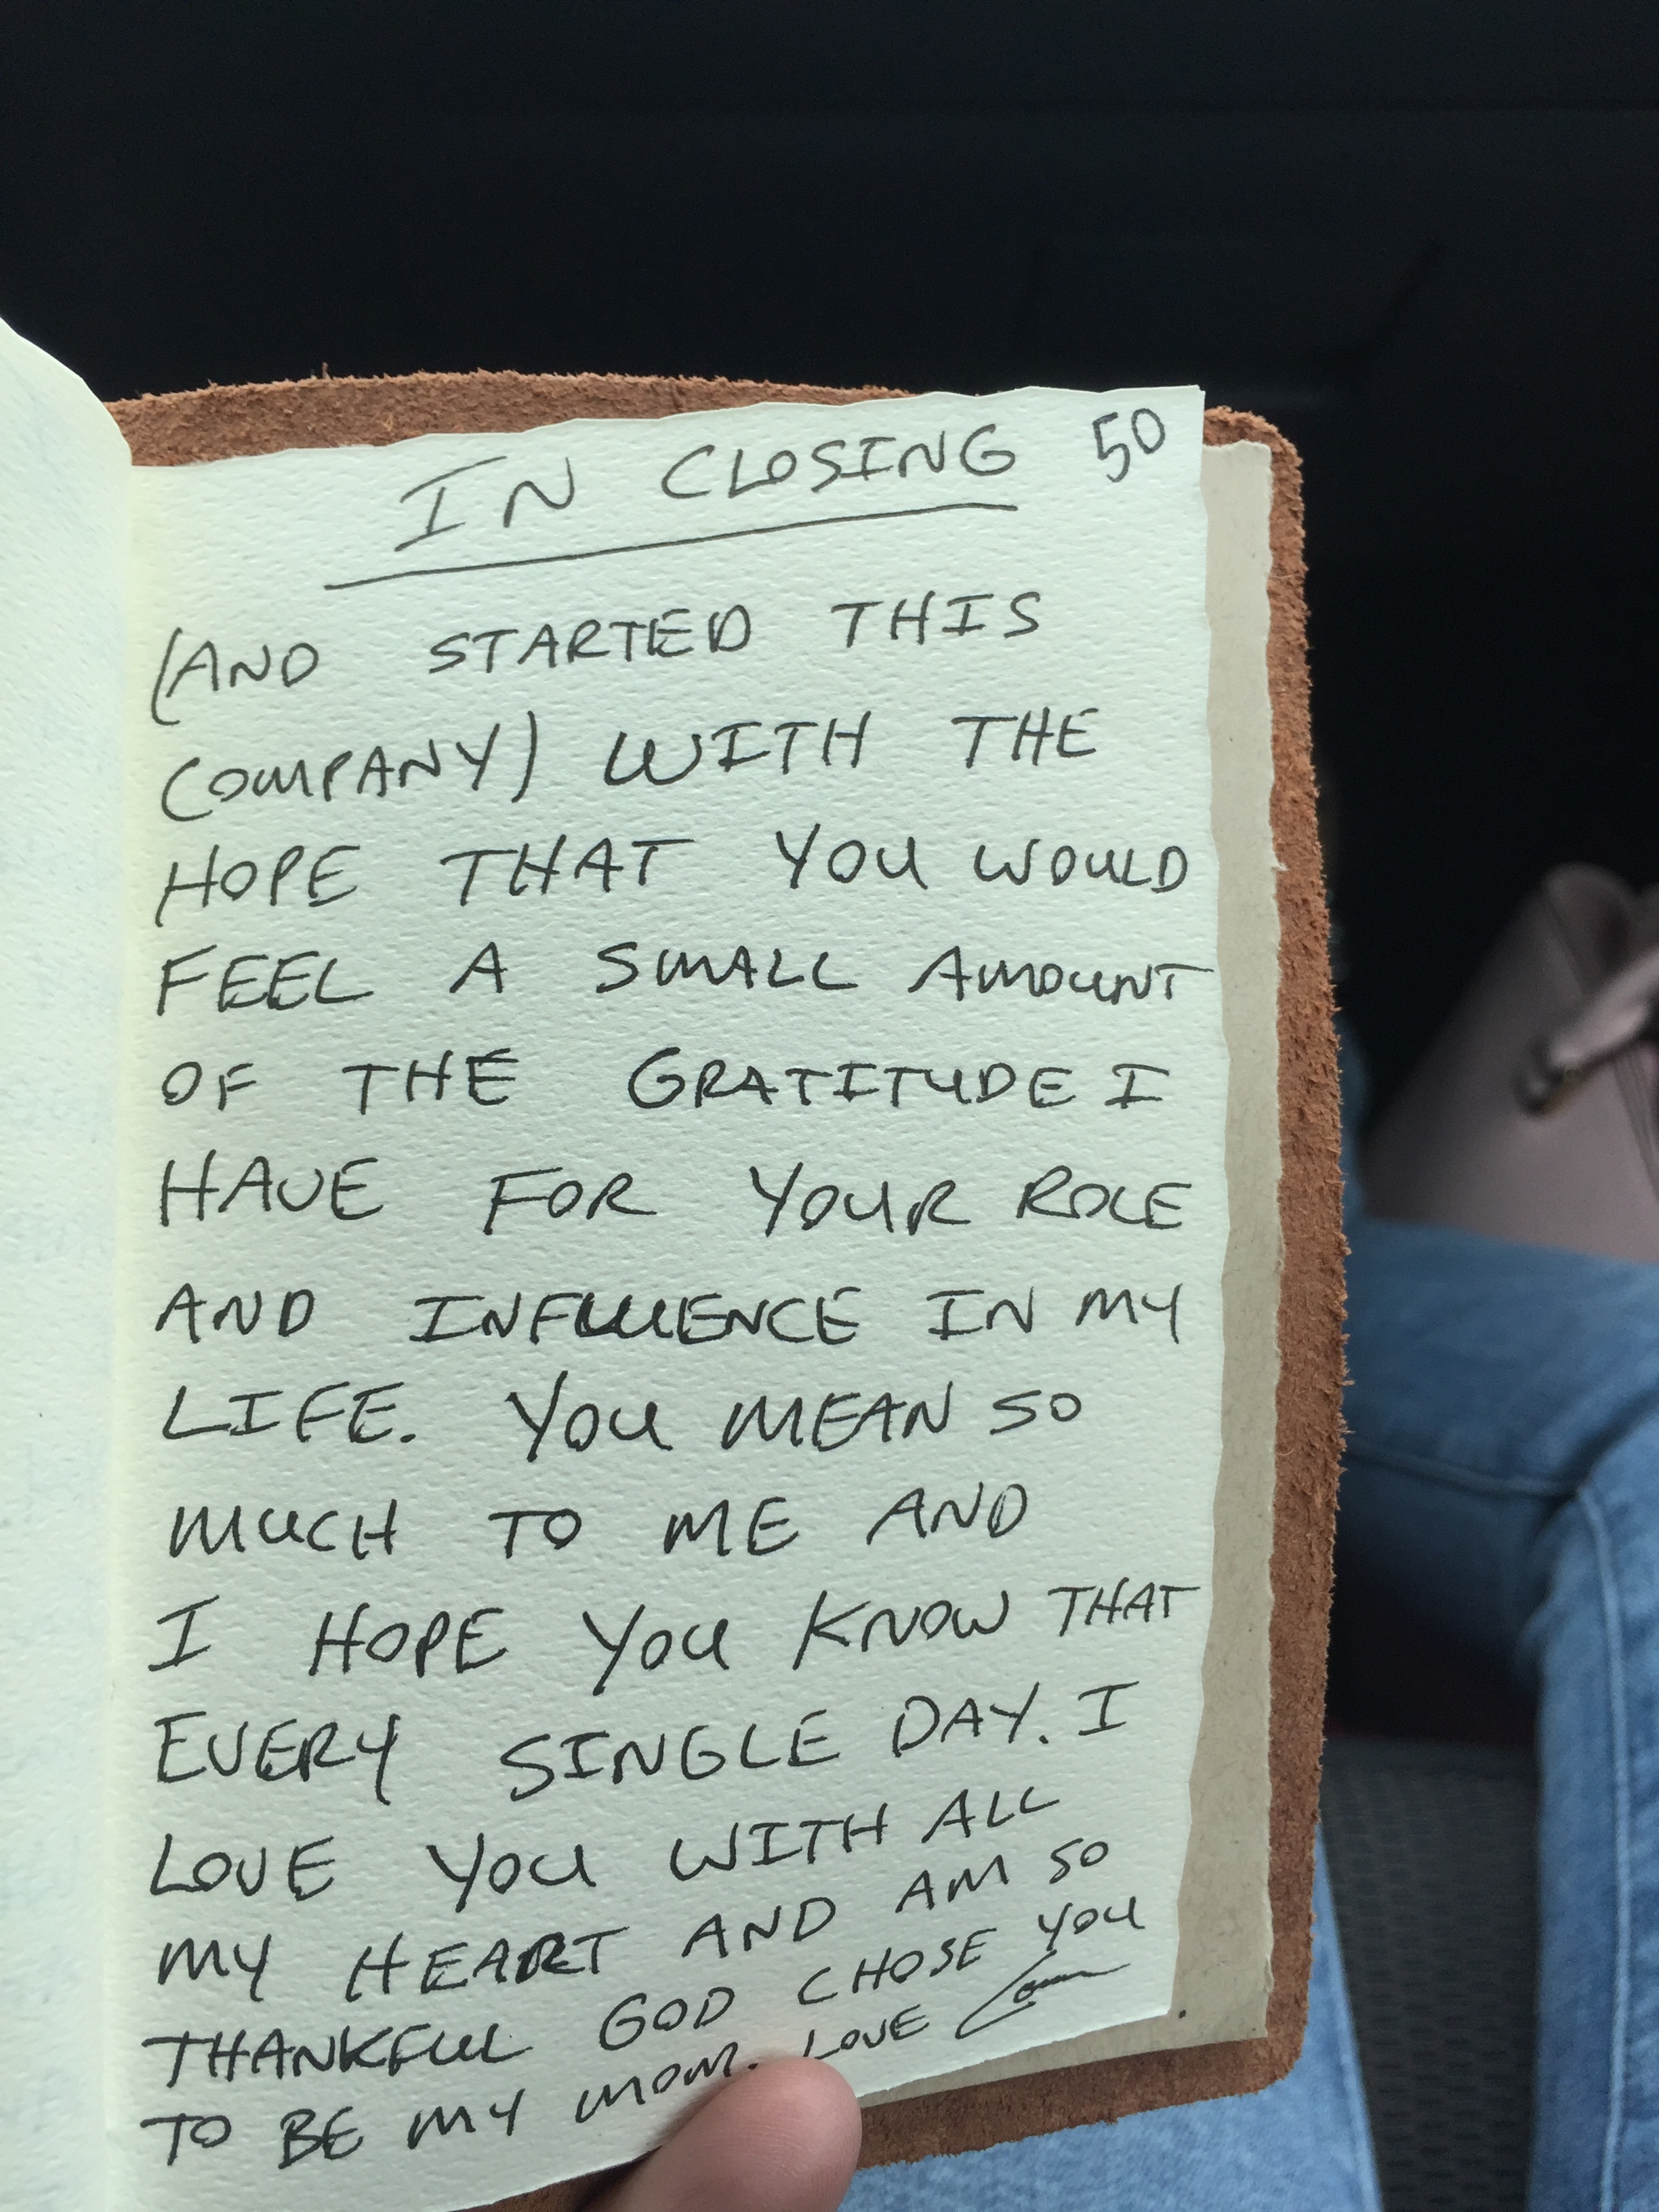 IN CLOSING 50
(AND STARTED THIS
COMPANY) WITH THE
HOPE THAT YOU WOULD
FEEL A SMALL AMOUNT
OF THE GRATITUDE I
HAVE FOR YOUR ROLE
AND INFLUENCE IN MY
LIFE. YOU MEAN SO
MUCH TO ME AND
I HOPE YOU KNOW THAT
EVERY SINGLE DAY. I
LOVE YOU WITH ALL
MY HEART AND AM SO
THANKFUL GOD CHOSE YOU
TO BE MY MOM. LOVE